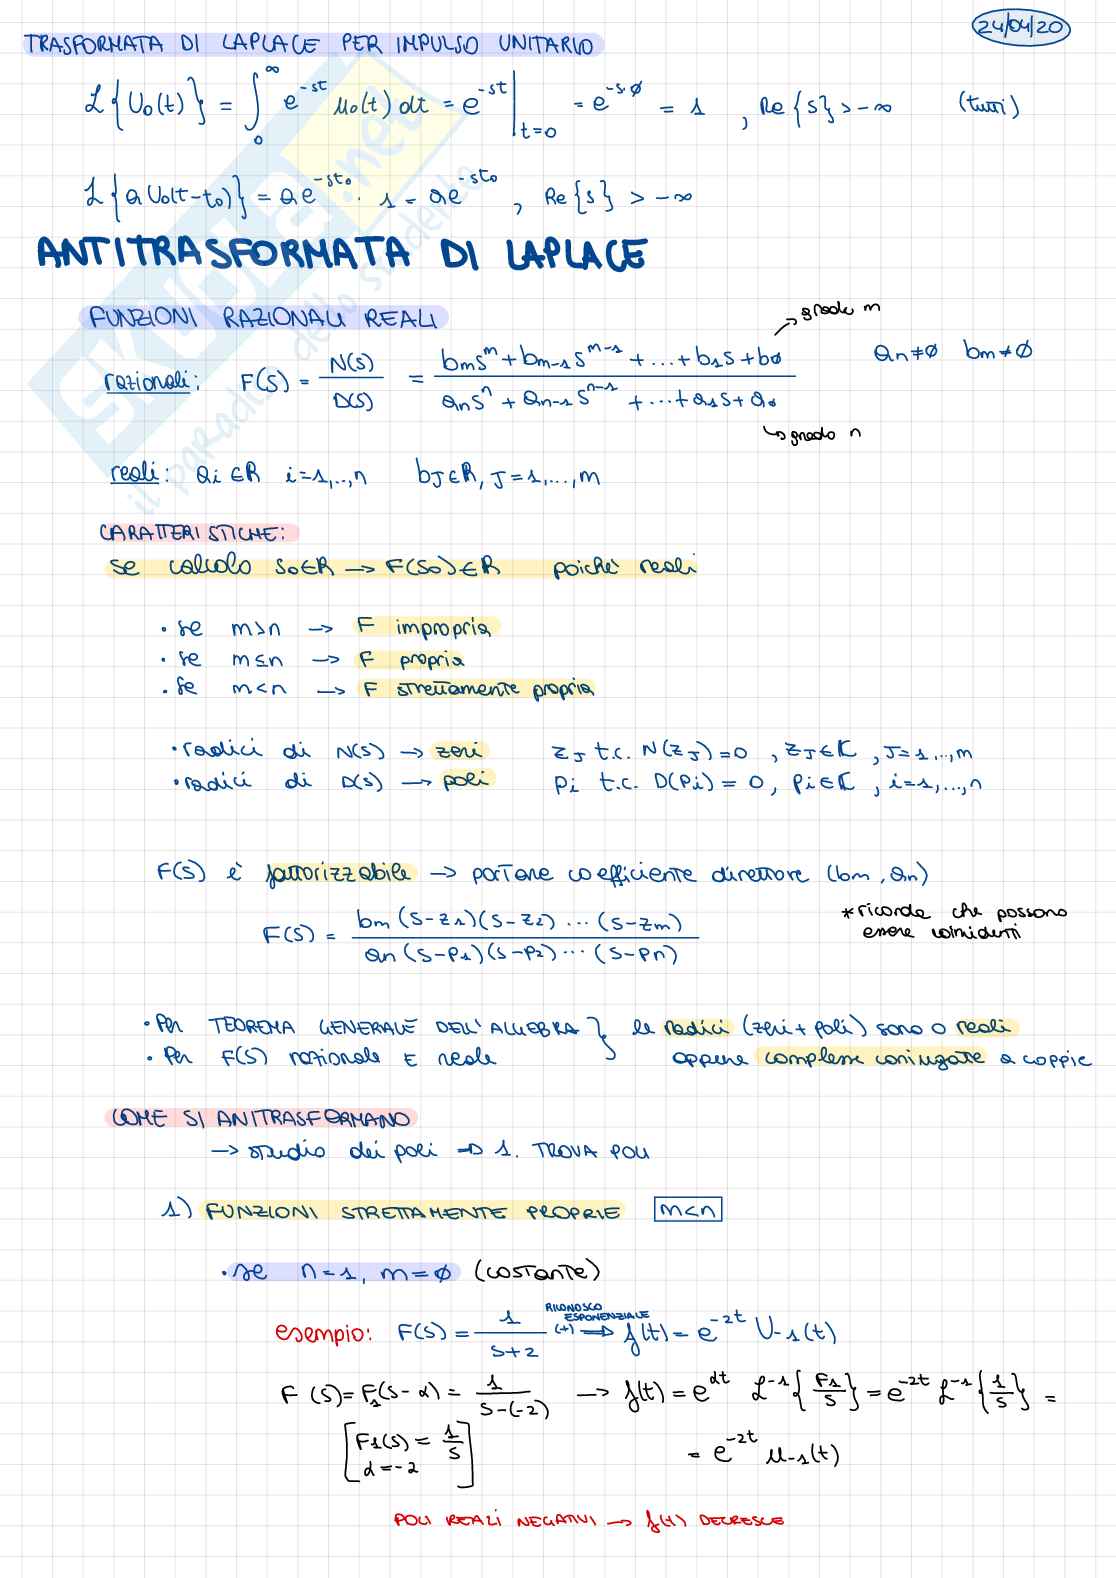 24/04/20
TRASFORMATA DI LAPLACE PER IMPULSO UNITARIO
ℒ{U₀(t)} = ∫₀^∞ e^{-st} u₀(t) dt = e^{-st} |_{t=0} = e^{-s·∅} = 1 , Re{s} > -∞ (tutti)
ℒ{a U₀(t-t₀)} = a e^{-st₀} · 1 = a e^{-st₀} , Re{s} > -∞
ANTITRASFORMATA DI LAPLACE
FUNZIONI RAZIONALI REALI
→ grado m
razionali: F(s) = N(s)/D(s) = (bₘs^m + bₘ₋₁s^{m-1} + ... + b₁s + b∅)/(aₙs^n + aₙ₋₁s^{n-1} + ... + a₁s + a₀) aₙ≠∅ bₘ≠∅
↳ grado n
reali: ai ∈ R i=1,..,n bJ ∈ R, J=1,...,m
CARATTERISTICHE:
se calcolo S₀∈R → F(S₀)∈R poiché reali
• se m>n → F impropria
• se m≤n → F propria
• se m<n → F strettamente propria
• radici di N(s) → zeri zJ t.c. N(zJ)=0 , zJ∈ℂ , J=1,..,m
• radici di D(s) → poli pi t.c. D(pi) = 0, pi∈ℂ , i=1,...,n
F(s) è fattorizzabile → portare coefficiente direttore (bm, an)
*ricorda che possono
essere coincidenti
F(s) = bm(s-z₁)(s-z₂)...(s-zm)/an(s-p₁)(s-p₂)...(s-pn)
• Per TEOREMA GENERALE DELL'ALGEBRA } le radici (zeri+poli) sono o reali
• Per F(s) razionale E reale oppure complesse coniugate a coppie
COME SI ANITRASFORMANO
→ studio dei poli ⇒ 1. TROVA POLI
1) FUNZIONI STRETTAMENTE PROPRIE m<n
• se n=1, m=∅ (COSTANTE)
RICONOSCO
ESPONENZIALE
esempio: F(s) = 1/(s+2) (+)⇒ f(t) = e^{-2t} U₋₁(t)
F(s) = F₁(s-α) = 1/(s-(-2)) → f(t) = e^{αt} ℒ⁻¹{F₁/s} = e^{-2t} ℒ⁻¹{1/s} =
[F₁(s) = 1/s
α=-2]
= e^{-2t} u₋₁(t)
POLI REALI NEGATIVI → f(t) DECRESCE
skuola.net
il paradiso dello studente